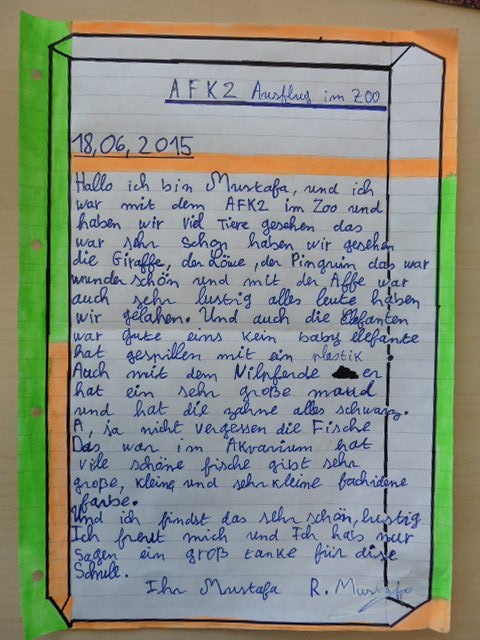 AFK2 Ausflug im ZOO
18,06,2015
Hallo ich bin Mustafa, und ich
war mit dem AFK2 im Zoo und
haben wir viel Tiere gesehen das
war sehr schon haben wir gesehen
die Giraffe, der Löwe, der Pinguin das war
wunder schön und mit der Affe war
auch sehr lustig alles leute haben
wir gelahen. Und auch die Elefanten
war gute eins kein baby elefante
hat gespillen mit ein plastik.
Auch mit dem Nilpferde er
hat ein sehr große maud
und hat die zähne alles schwarz.
A, ja nicht vergessen die Fische
Das war im Akvarium hat
viele schöne fische gibt sehr
große, kleine und sehr kleine fachidene
farbe.
Und ich findst das sehr schön, lustig
Ich freut mich und Ich hab nur
sagen ein groß tanke für dise
Schule.
Ihr Mustafa R. Mustafa